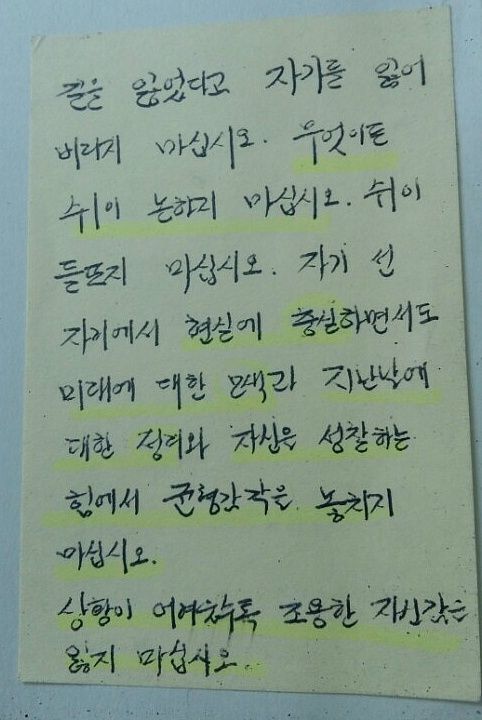 길을 잃었다고 자기를 잃어
버리지 마십시오. 무엇이든
쉬이 논하지 마십시오. 쉬이
들뜨지 마십시오. 자기 선
자리에서 현실에 충실하면서도
미래에 대한 모색과 지난날에
대한 정리와 자신을 성찰하는
힘에서 균형감각을 놓치지
마십시오.
상황이 어려울수록 조용한 자신감을
잃지 마십시오.